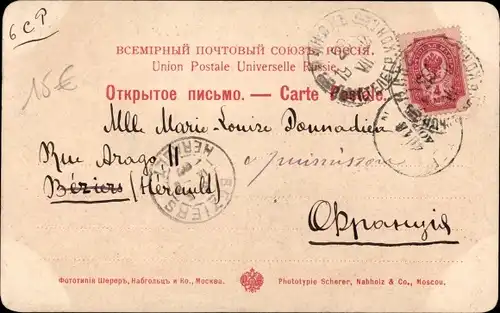 6 C P
15 €
ВСЕМІРНЫЙ ПОЧТОВЫЙ СОЮЗЪ. РОССІЯ.
Union Postale Universelle Russie.
Открытое письмо. — Carte Postale.
Mlle Marie-Louise Donnadieu
Rue Arago 11
Béziers (Herault)
Франція
BEZIERS
Фототипія Шереръ, Набгольцъ и Ко., Москва.
Phototypie Scherer, Nabholz & Co., Moscou.